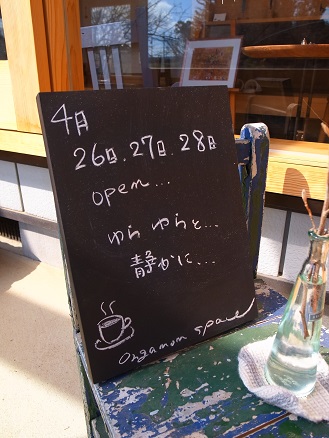 4月
26日.27日.28日
open...
ゆら ゆらと...
静かに...
Onganom space